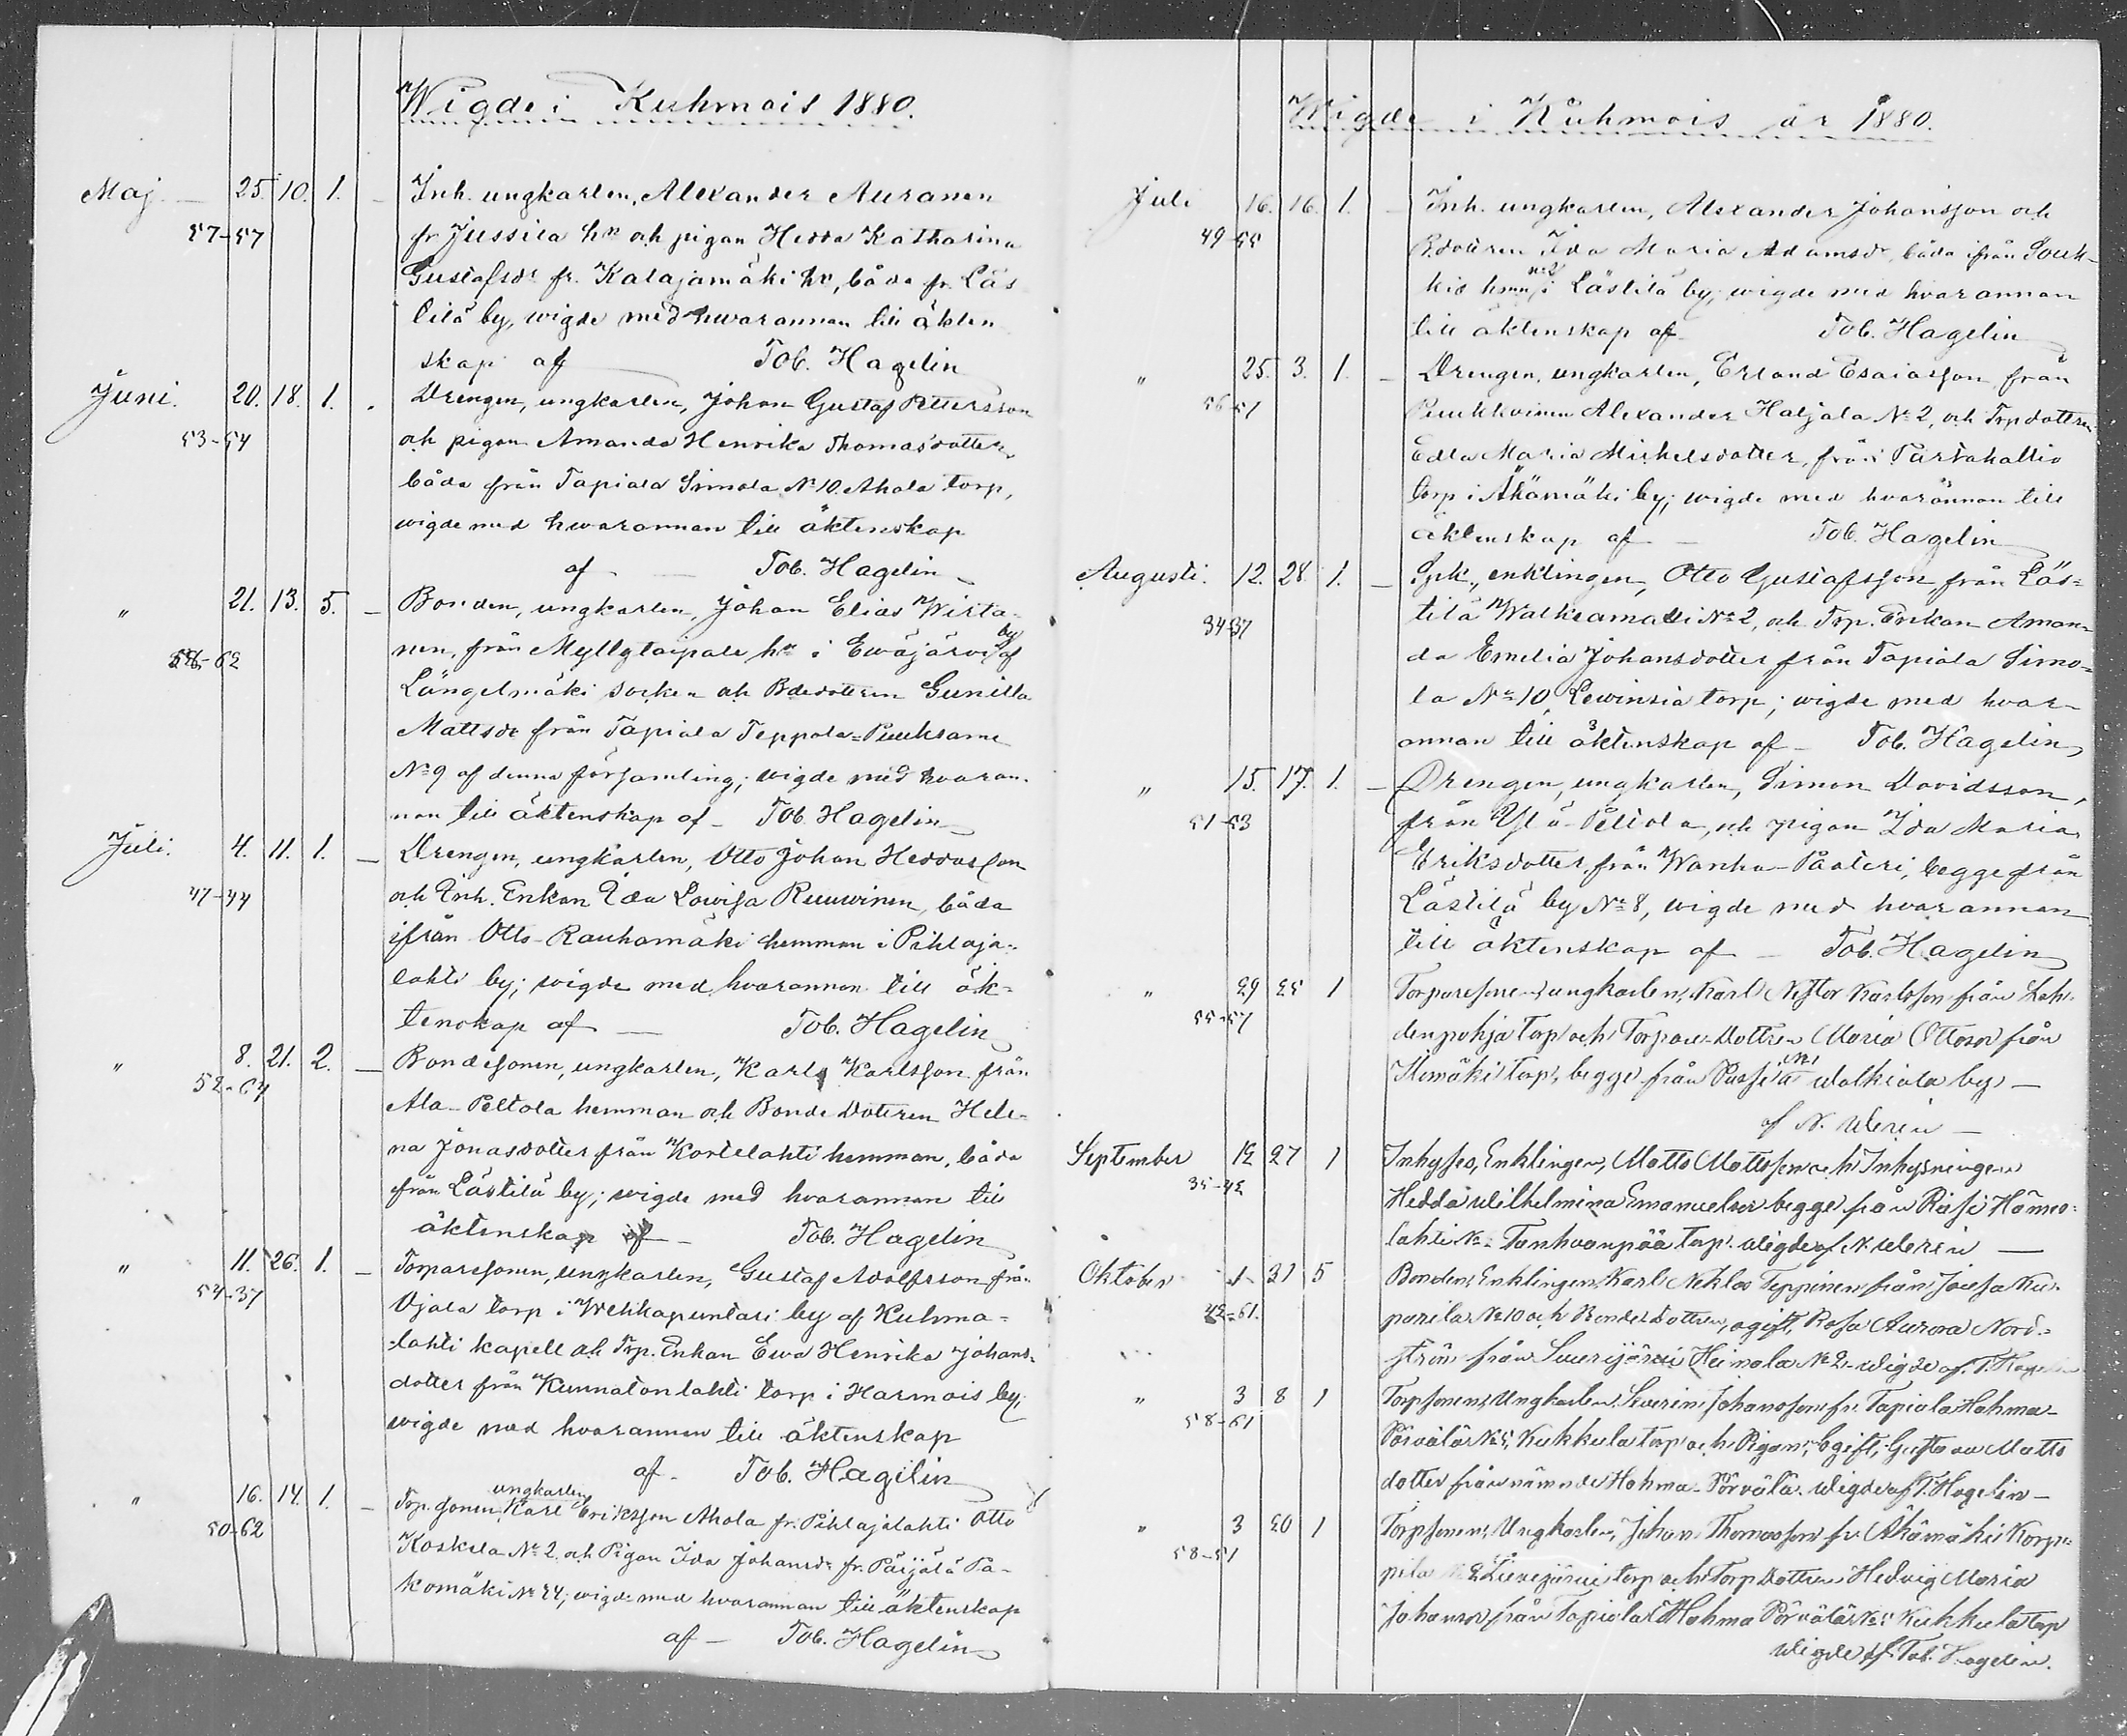 Wigde i Kuhmois 1880.
Maj. — 25. 10. 1. — Inh. ungkarlen, Alexander Auranen
57-57 fr Jussila hn och pigan Hedda Katharina
Gustafsdr fr. Kalajamäki hn, båda fr. Läs
tilä by, wigde med hwarannan till äkten
skap af Tob. Hagelin
Juni. 20. 18. 1. Drengen, ungkarlen, Johan Gustaf Pettersson
53-54 och pigan Amanda Henrika Thomasdotter,
båda från Tapiala Simola No 10. Ahola torp,
wigde med hwarannan till äktenskap
af — Tob. Hagelin
" 21. 13. 5. — Bonden, ungkarlen, Johan Elias Wirta-
nen, från Myllytaipale hn i Ewäjärwi by af
-62 Längelmäki socken och Bdedottren Gunilla
Mattsdr från Tapiala Teppola-Puuksame
No 9 af denna församling; wigde med hvaran-
nan till äktenskap af — Tob. Hagelin
Juli. 4. 11. 1. — Drengen, ungkarlen, Otto Johan Heddasson
47-44 och Inh. Enkan Ida Lowisa Ruuwinen, båda
ifrån Otto-Rauhamäki hemman i Pihlaja-
lahti by; wigde med hvarannan till äk-
tenskap af — Tob. Hagelin
" 8. 21. 2. — Bondesonen, ungkarlen, Karl Karlsson från
52-64 Ala-Peltola hemman och Bonde Dottren Hele-
na Jonasdotter från Kortelahti hemman, båda
från Lästilä by; wigde med hvarannan till
äktenskap af — Tob. Hagelin
" 11. 26. 1. — Torparesonen, ungkarlen, Gustaf Adolfsson från
54-37 Ojala torp i Wehkapuntari by af Kuhma-
lahti kapell och Trp. Enkan Ewa Henrika Johans-
dotter från Kunnatonlahti torp i Harmois by;
wigde med hvarannan till äktenskap
af — Tob. Hagelin
" 16. 14. 1. — Trp. sonen, ungkarlen Karl Eriksson Ahola fr. Pihlajalahti Otto
50-62 Koskela No 2. och Pigan Ida Johansdr fr. Päijälä Pa-
komäki No 24; wigde med hvarannan till äktenskap
af — Tob. Hagelin
Wigde i Kuhmois år 1880.
Juli 16. 16. 1. — Inh. ungkarlen, Alexander Johansson och
49-55 B.dottren Ida Maria Adamsdr, båda ifrån Souk-
kio hmn No 2 i Lästilä by; wigde med hvarannan
till äktenskap af — Tob. Hagelin
" 25. 3. 1. — Drengen, ungkarlen, Erland Esaiasson från
56-51 Alexander Haljala No 2, och Trpdottren
Edla Maria Michelsdotter, från Partakallio
torp i Ahämäki by; wigde med hvarannan till
äktenskap af — Tob. Hagelin
Augusti. 12. 28. 1. — Spk., enklingen, Otto Gustafsson, från Läs-
34-37 tilä Walkeamatti No 2, och Trp. Enkan Aman-
da Emelia Johansdotter från Tapiala Simo-
la No 10, Lewinsia torp; wigde med hvar-
annan till äktenskap af — Tob. Hagelin
" 15. 17. 1. — Drengen, ungkarlen, Simon Davidsson,
51-53 från Ylä-Peltola, och pigan Ida Maria
Eriksdotter från Wanha-Pääteri, begge från
Lästilä by No 8, wigde med hvarannan
till äktenskap af — Tob. Hagelin
" 29 25 1 Torparesonen, ungkarlen, Karl Nestor Karlsson från Lah-
55-57 denpohja torp och Torpare Dottren Maria Ottosdr från
torp, begge från Walkiala by —
af N. Werin —
September 12 27 1 Inhyses, Enklingen, Matts Mattsson och Inhysningen
35-42 Hedda Wilhelmina Emanuelsdr begge från
lahti No Tanhuanpää torp. Wigde af N. Werin —
Oktober 1 31 5 Bonden, Enklingen, Karl Niklas Teppinen från
42-61. No 10 och Bonde Dottren, ogift, Rosa Aurora Nord-
ström från Suurijärvi Heinola No 2. Wigde af T. Hagelin
" 3 8 1 Torpsonen, Ungkarlen, Severin Johansson fr. Tapiola Hahma-
58-61 Pörvälä No 5, Kukkula torp och Pigan, ogift, Matts
dotter från nämnde Hahma-Pörvälä. Wigde af T. Hagelin —
" 3 20 1 Torpsonen, Ungkarlen, Johan Thomasson fr. Ahämäki Korp-
58-51 pila No 2 torp och Torp Dottren Hedvig Maria
Johansdr från Tapiola Hahma Pörvälä No 5 Kukkula torp
Wigde af Tob. Hagelin.